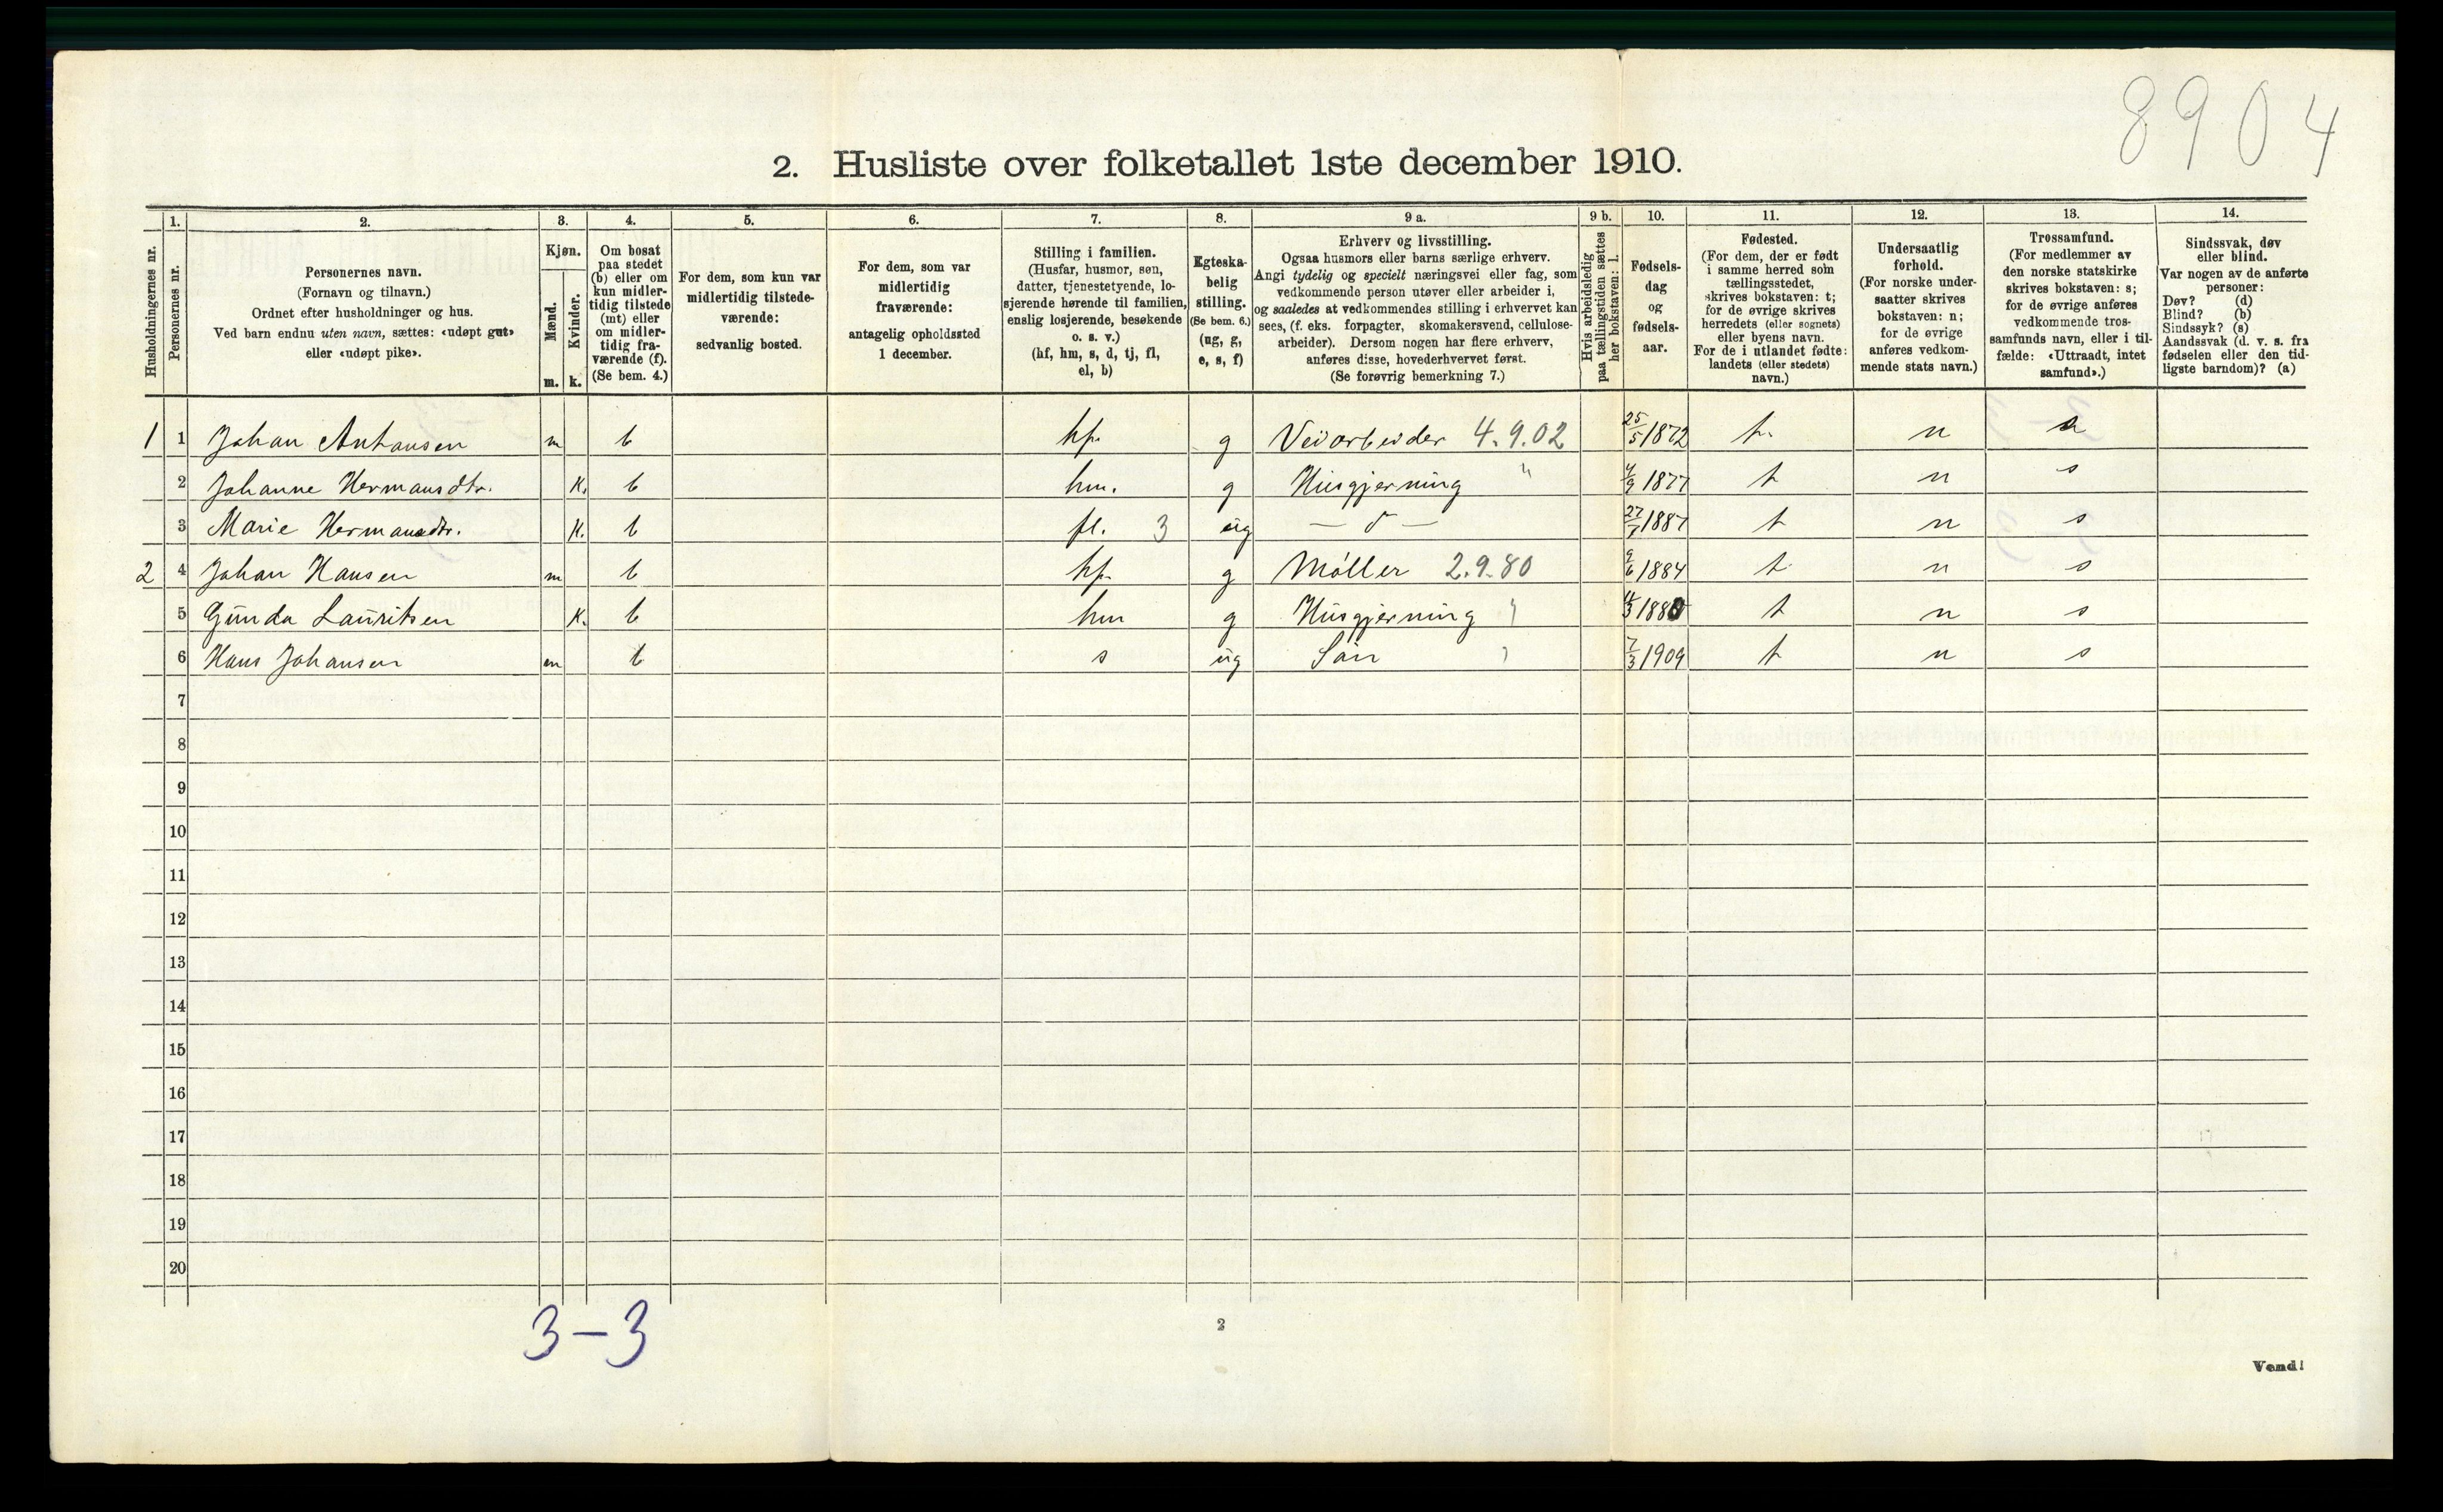 8904
2. Husliste over folketallet 1ste december 1910.
Husholdningernes nr.
1.
Personernes nr.
2.
Personernes navn.
(Fornavn og tilnavn.)
Ordnet efter husholdninger og hus.
Ved barn endnu uten navn, sættes: «udøpt gut»
eller «udøpt pike».
3.
Kjøn.
Mænd.
Kvinder.
m. k.
4.
Om bosat
paa stedet
(b) eller om
kun midler-
tidig tilstede
(mt) eller
om midler-
tidig fra-
værende (f).
(Se bem. 4.)
5.
For dem, som kun var
midlertidig tilstede-
værende:
sedvanlig bosted.
6.
For dem, som var
midlertidig
fraværende:
antagelig opholdssted
1 december.
7.
Stilling i familien.
(Husfar, husmor, søn,
datter, tjenestetyende, lo-
sjerende hørende til familien,
enslig losjerende, besøkende
o. s. v.)
(hf, hm, s, d, tj, fl,
el, b)
8.
Egteska-
belig
stilling.
(Se bem. 6.)
(ug, g,
e, s, f)
9 a.
Erhverv og livsstilling.
Ogsaa husmors eller barns særlige erhverv.
Angi tydelig og specielt næringsvei eller fag, som
vedkommende person utøver eller arbeider i,
og saaledes at vedkommendes stilling i erhvervet kan
sees, (f. eks. forpagter, skomakersvend, cellulose-
arbeider). Dersom nogen har flere erhverv,
anføres disse, hovederhvervet først.
(Se forøvrig bemerkning 7.)
9 b.
Hvis arbeidsledig
paa tællingstiden sættes
her bokstaven: l.
10.
Fødsels-
dag
og
fødsels-
aar.
11.
Fødested.
(For dem, der er født
i samme herred som
tællingsstedet,
skrives bokstaven: t;
for de øvrige skrives
herredets (eller sognets)
eller byens navn.
For de i utlandet fødte:
landets (eller stedets)
navn.)
12.
Undersaatlig
forhold.
(For norske under-
saatter skrives
bokstaven: n;
for de øvrige
anføres vedkom-
mende stats navn.)
13.
Trossamfund.
(For medlemmer av
den norske statskirke
skrives bokstaven: s;
for de øvrige anføres
vedkommende tros-
samfunds navn, eller i til-
fælde: «Uttraadt, intet
samfund».)
14.
Sindssvak, døv
eller blind.
Var nogen av de anførte
personer:
Døv? (d)
Blind? (b)
Sindssyk? (s)
Aandssvak (d. v. s. fra
fødselen eller den tid-
ligste barndom)? (a)
1 1 Johan Antonsen m b hf. g Veiarbeider 4.9.02 25/5 1872 t. n s
2 Johanne Hermansdtr. K. b hm. g Husgjerning " 4/9 1877 t n s
3 Marie Hermansdtr. K. b fl. 3 ug — d — 27/7 1887 t n s
2 4 Johan Hansen m b hf g Møller 2.9.80 9/6 1884 t n s
5 Gunda Lauritsen K. b hm g Husgjerning " 1880 t n s
6 Hans Johansen m b s ug Søn " 7/3 1909 t n s
7
8
9
10
11
12
13
14
15
16
17
18
19
20
3-3
2
Vend!